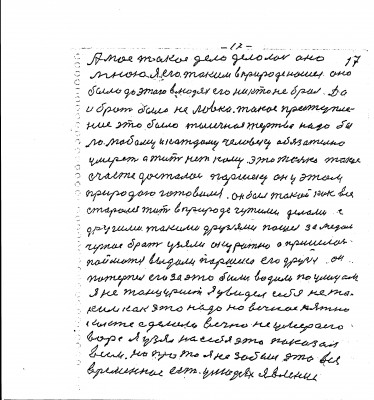 - 17 -
17
А мое такое дело делолог оно
мною я его таким в природе нашел оно
было до этого в людях его никто не брал. Да
и брат было не ловко. такое преступле-
ние это было типичная жертва надо бы
ло любому и каждому человеку обязательно
умереть а жить нет кому. это только такое
счастье досталос паршеку он у этом
природою готовилься. он был такой как все
старался жит в природе чужими делами с
другими такими друзями пошел за медом
чужое брат узяли аккуратно а пришлос
поймали выдали паршека его други он
потерпел его за это били водили по улицам
я не танцурист я увидел себя не та-
ким как это надо на вечное пятно
а делаю вечно не умераю
вора я узял на себя это показал
всем. но про то я не забыл это все
временное ест. у людях явление